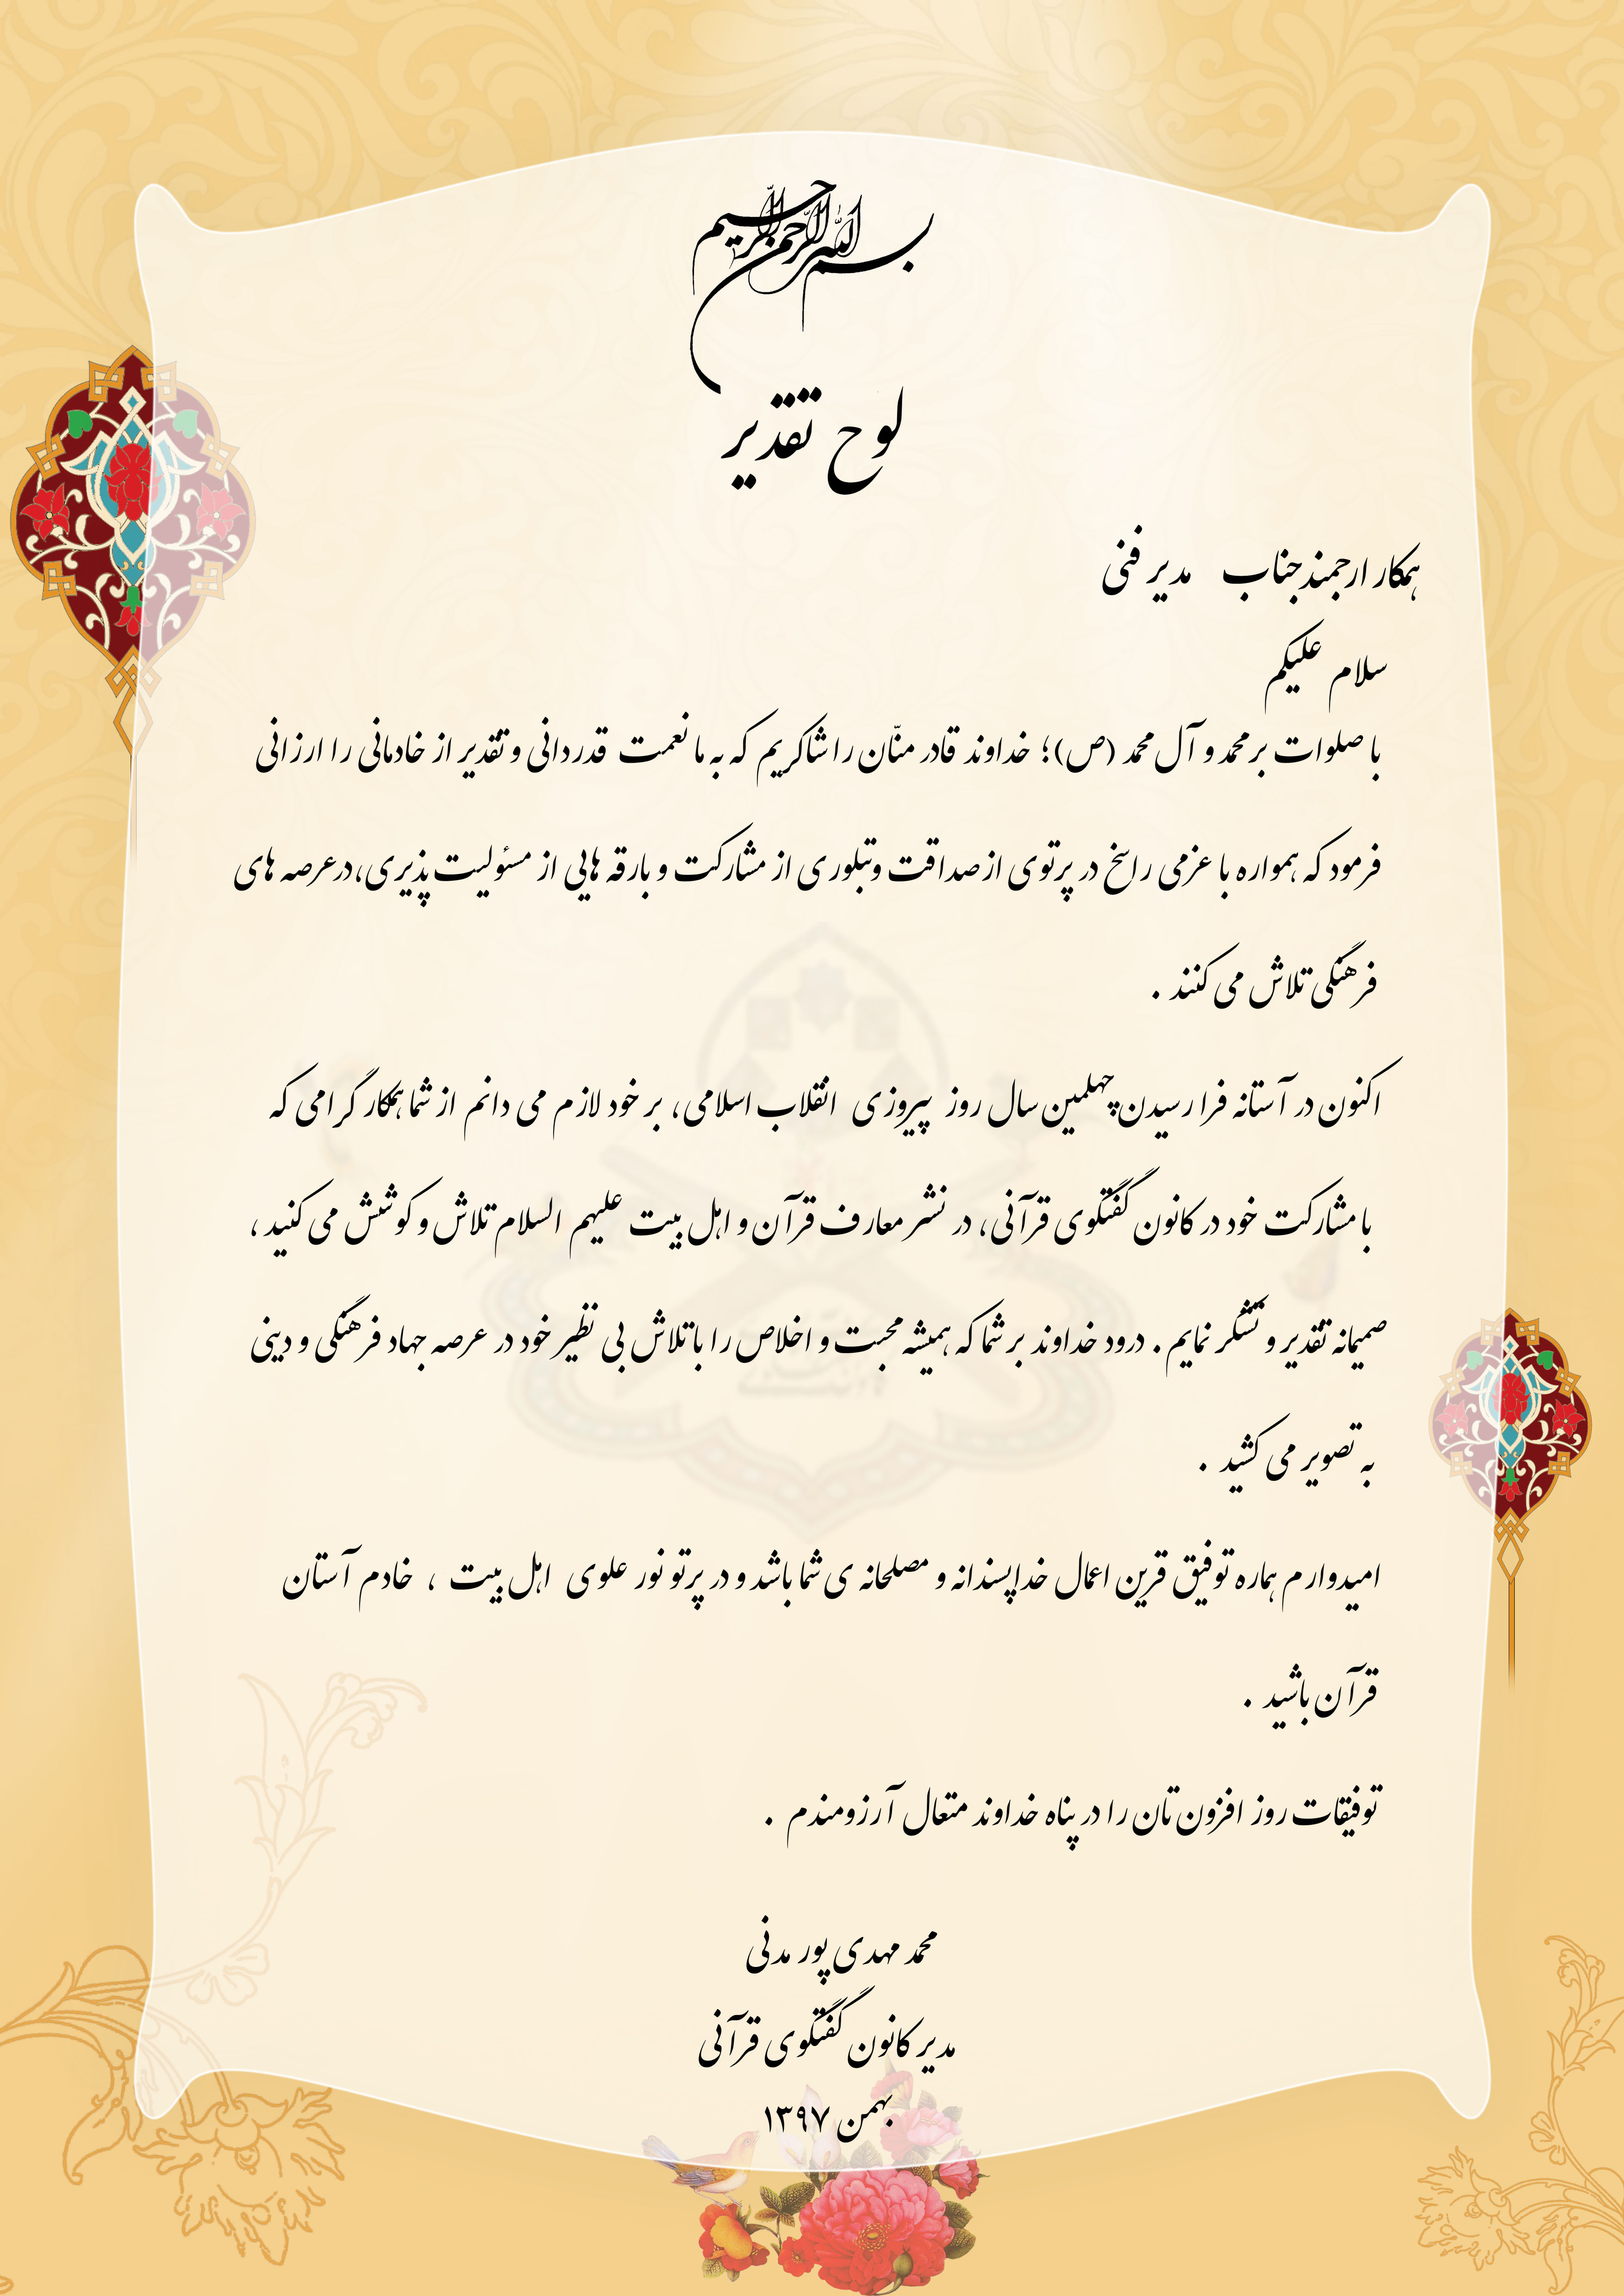 بسم الله الرحمن الرحیم
لوح تقدیر
همکار ارجمند جناب مدیر فنی
سلام علیکم
با صلوات بر محمد و آل محمد (ص)؛ خداوند قادر منّان را شاکریم که به ما نعمت قدردانی و تقدیر از خادمانی را ارزانی
فرمود که همواره با عزمی راسخ در پرتوی از صداقت و تبلوری از مشارکت و بارقه هایی از مسئولیت پذیری، در عرصه های
فرهنگی تلاش می کنند .
اکنون در آستانه فرا رسیدن چهلمین سال روز پیروزی انقلاب اسلامی، بر خود لازم می دانم از شما همکار گرامی که
با مشارکت خود در کانون گفتگوی قرآنی، در نشر معارف قرآن و اهل بیت علیهم السلام تلاش و کوشش می کنید ،
صمیمانه تقدیر و تشکر نمایم . درود خداوند بر شما که همیشه محبت و اخلاص را با تلاش بی نظیر خود در عرصه جهاد فرهنگی و دینی
به تصویر می کشید .
امیدوارم هماره توفیق قرین اعمال خداپسندانه و مصلحانه ی شما باشد و در پرتو نور علوی اهل بیت ، خادم آستان
قرآن باشید .
توفیقات روز افزون تان را در پناه خداوند متعال آرزومندم .
محمد مهدی پور مدنی
مدیر کانون گفتگوی قرآنی
بهمن ۱۳۹۷